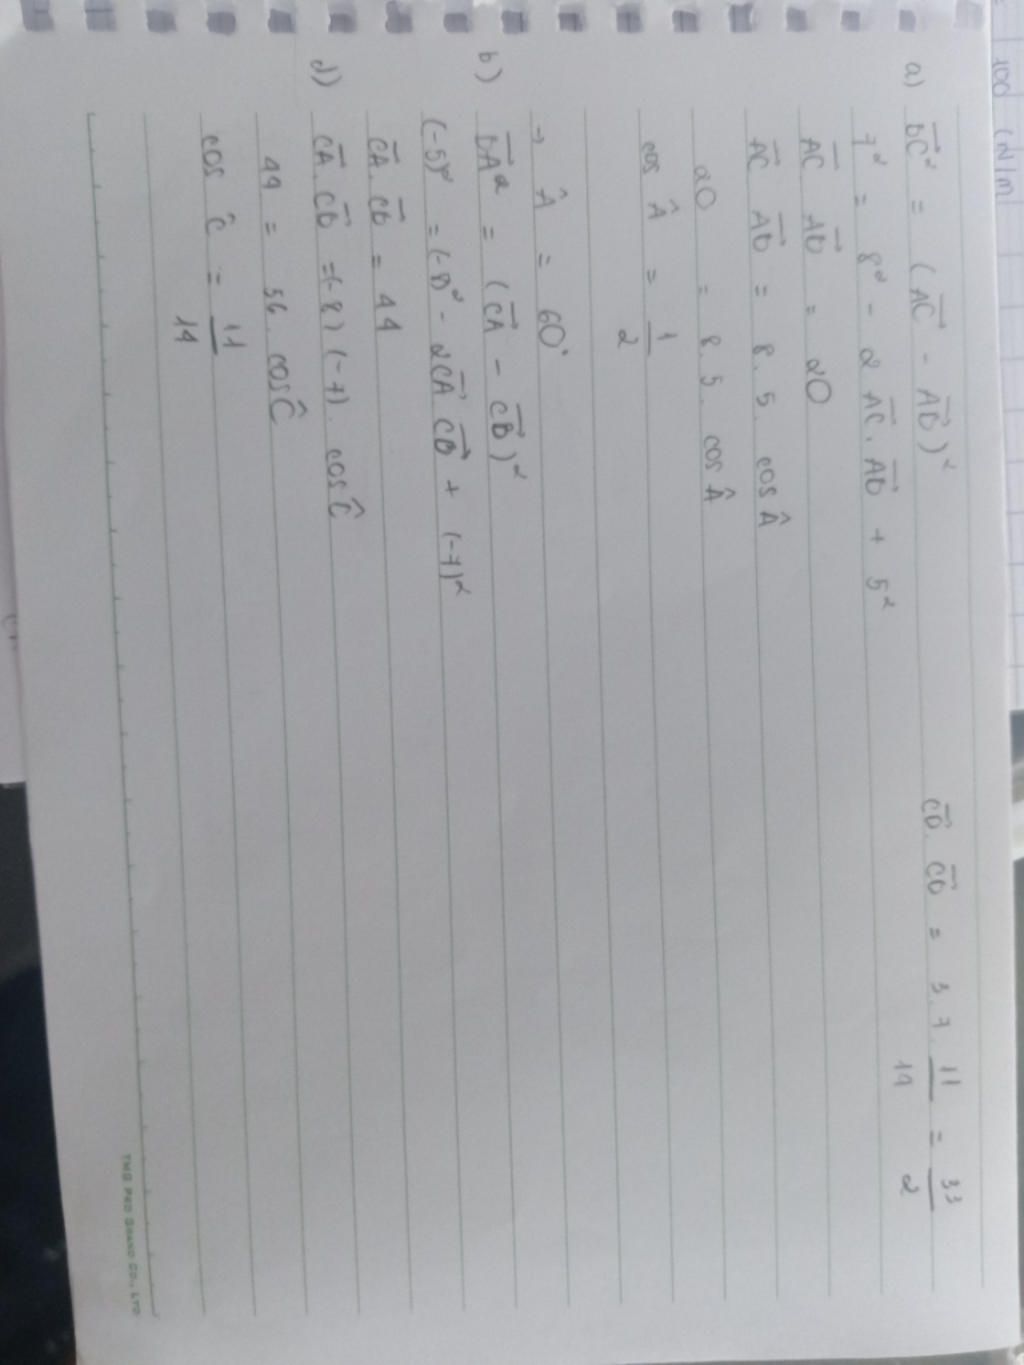 100 (N/m
a) BC⃗² = (AC⃗ - AB⃗)²
7² = 8² - 2 AC⃗. AB⃗ + 5²
AC⃗ AB⃗ = 20
AC⃗ AB⃗ = 8. 5. cos Â
20 = 8. 5. cos Â
cos Â = 1/2
→ Â = 60°
b) BA⃗² = (CA⃗ - CB⃗)²
(-5)² = (-8² - 2CA⃗ CB⃗ + (-7)²
CA⃗. CB⃗ = 44
d) CA⃗. CB⃗ = (-8) (-7). cos Ĉ
44 = 56. cos Ĉ
cos Ĉ = 11/14
CD⃗. CB⃗ = 3. 7. 11/14 = 33/2
TMG PRO BRAND CO., LTD